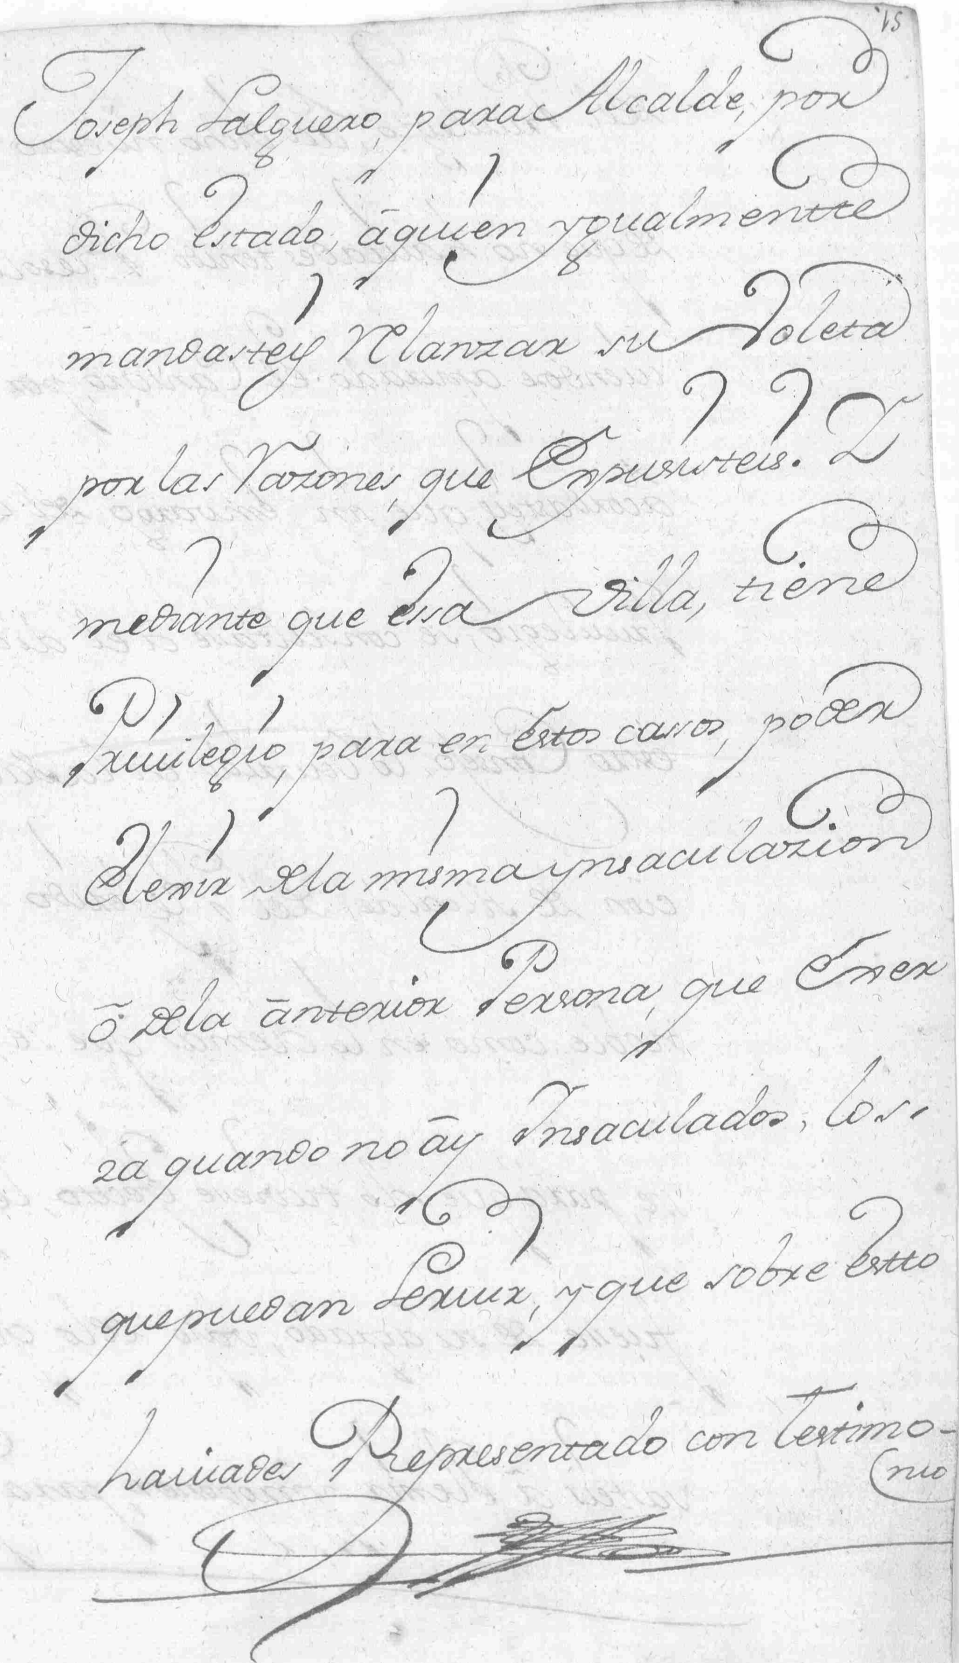 15
Joseph Salguero, para Alcalde, por
dicho estado, āquien ygualmentte
mandasteys Relanzar su Voleta
por las Razones, que Expusisteis. Y
mediante que essa Villa, tiene
Priuilegio, para en estos cassos, poder
elexir dela misma ynsaculazion
ō dela ānterior Persona, que Exer
za quando no āy Insaculados, los
que puedan Seruir, y que sobre estto
hauiades Representado con testimo-
nio